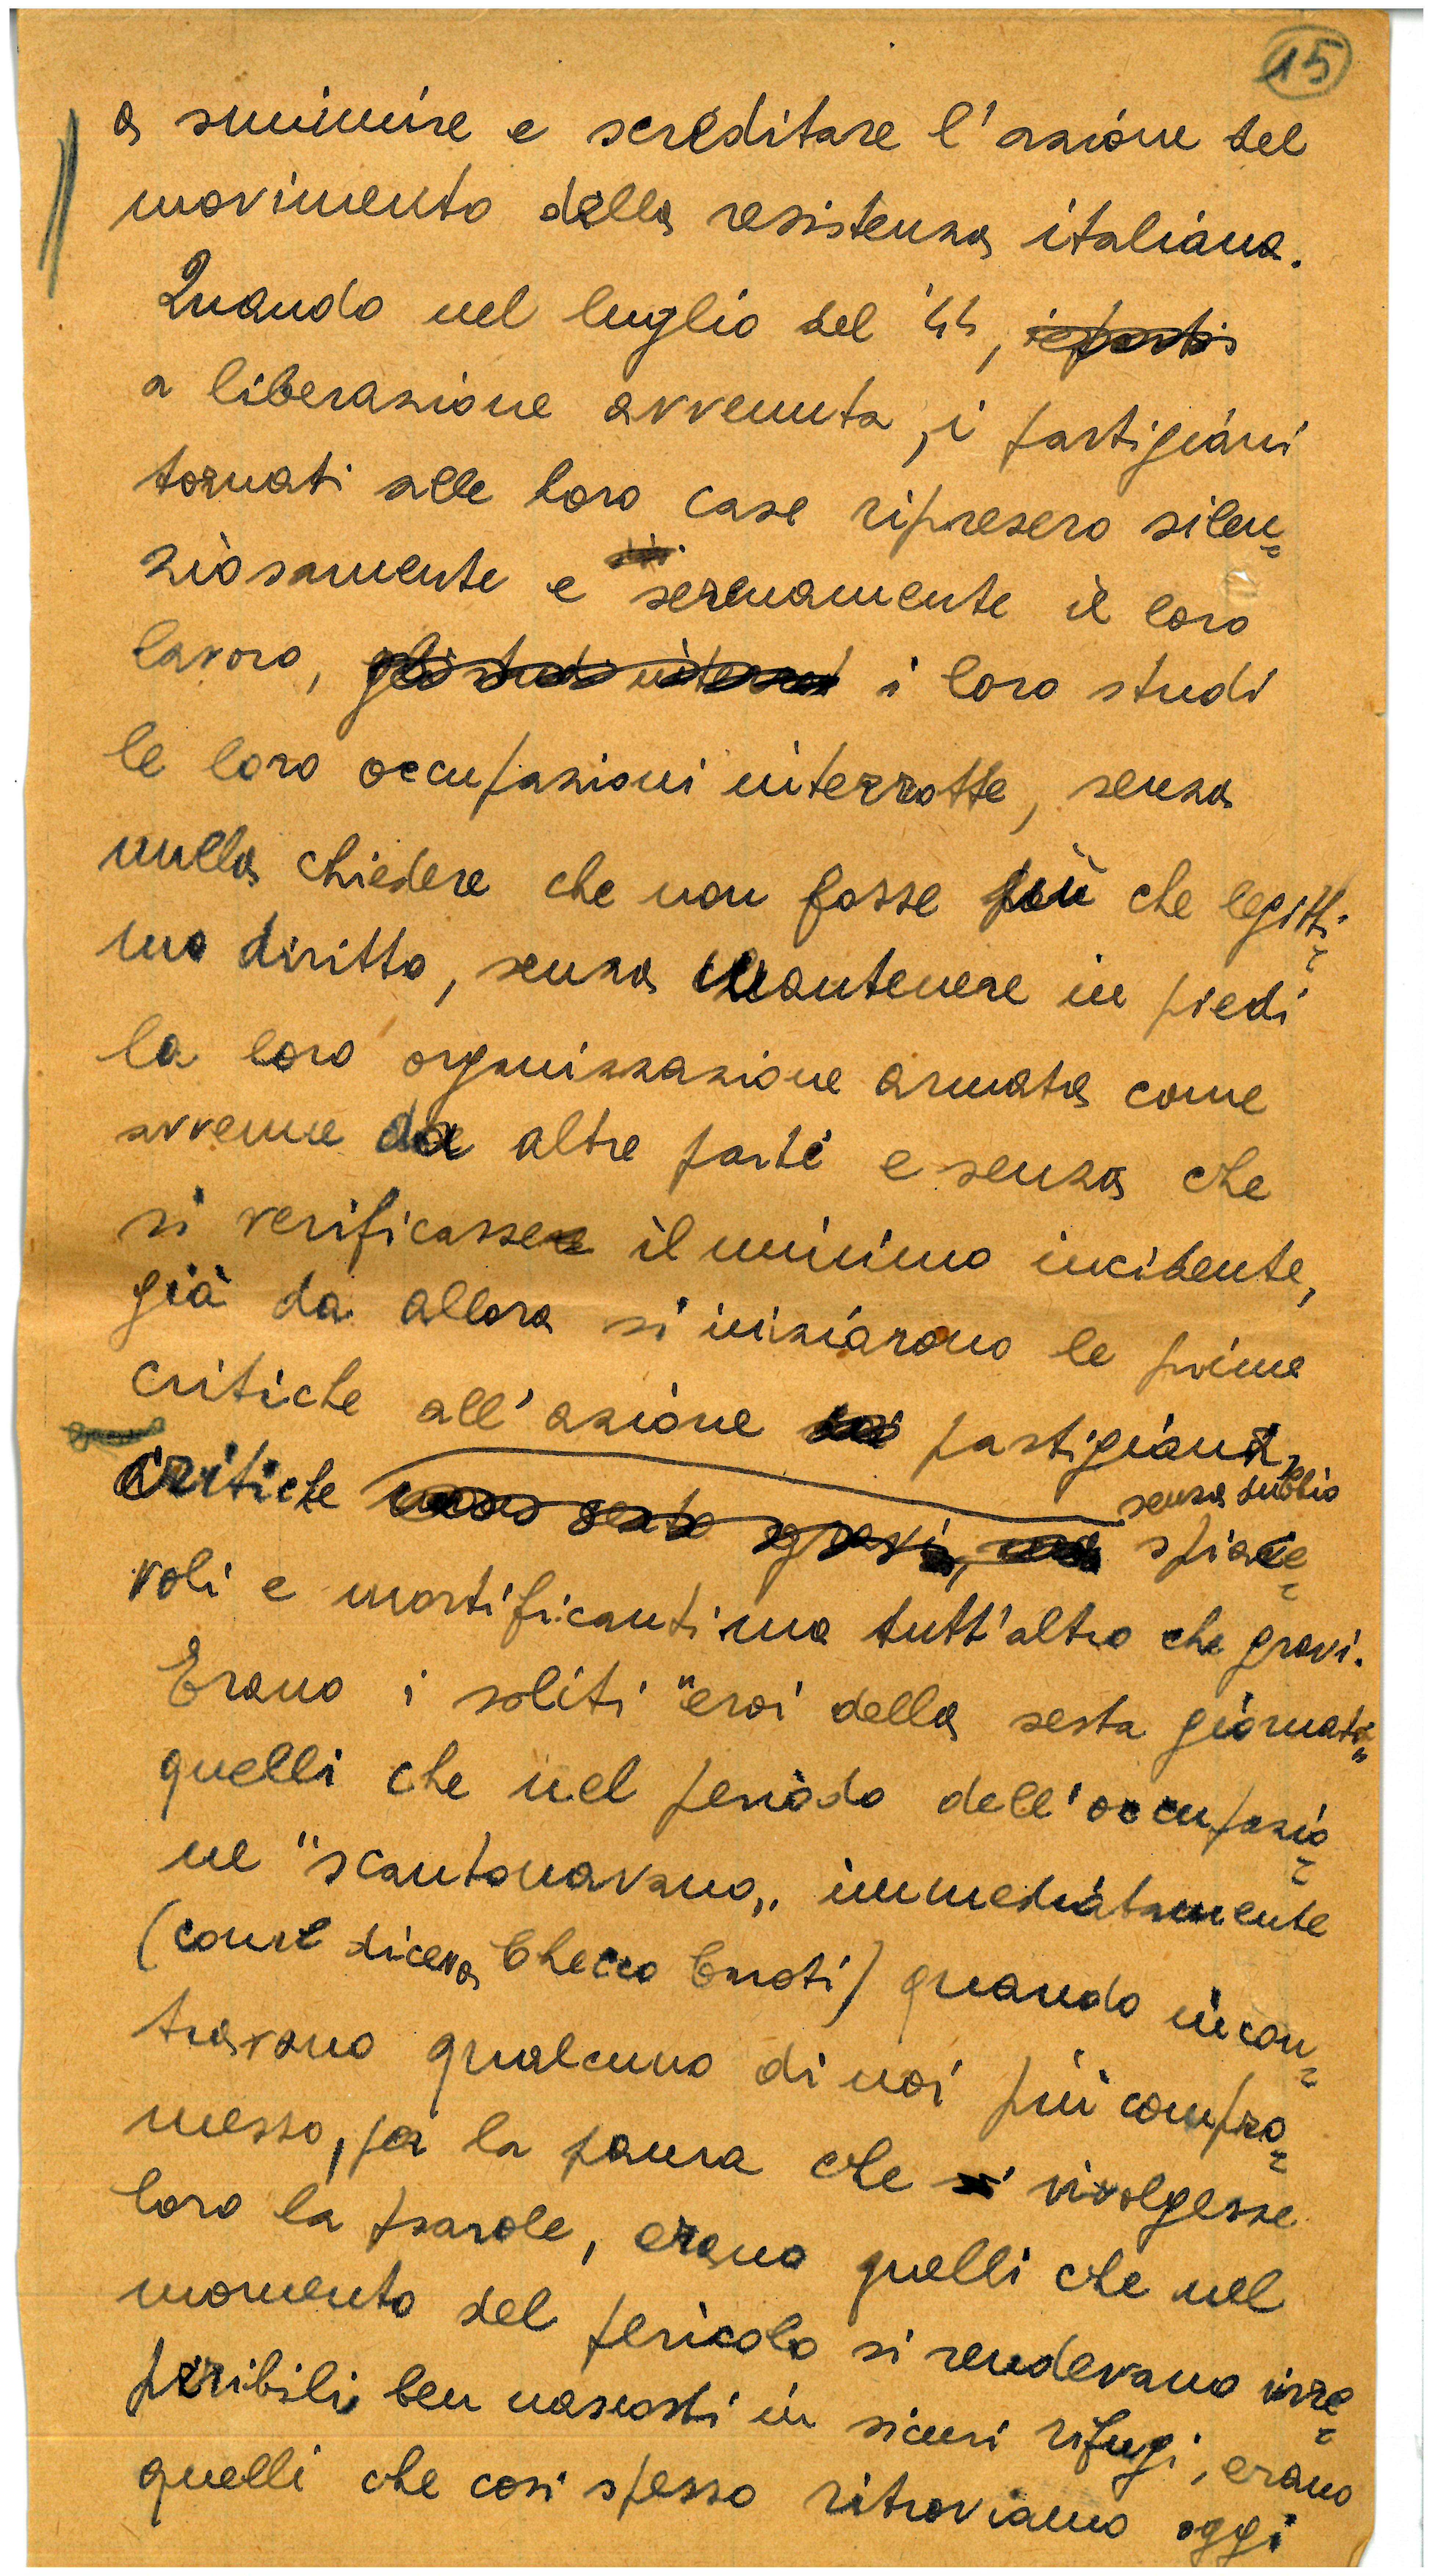 15
a sminuire e screditare l'azione del
movimento della resistenza italiana.
Quando nel luglio del '44,
a liberazione avvenuta, i partigiani
tornati alle loro case ripresero silen=
ziosamente e serenamente il loro
lavoro, i loro studi
le loro occupazioni interrotte, senza
nulla chiedere che non fosse più che legitti=
mo diritto, senza mantenere in piedi
la loro organizzazione armata come
avvenne da altre parti e senza che
si verificasse il minimo incidente,
già da allora si iniziarono le prime
critiche all'azione partigiana,
critiche senza dubbio spiace=
voli e mortificanti ma tutt'altro che gravi.
Erano i soliti "eroi della sesta giornata"
quelli che nel periodo dell'occupazio=
ne "scantonavano„ immediatamente
(come diceva Checco Curoti) quando incon=
travano qualcuno di noi più compro=
messo, per la paura che rivolgesse
loro la parole, erano quelli che nel
momento del pericolo si rendevano irre=
peribili ben nascosti in sicuri rifugi, erano
quelli che così spesso ritroviamo oggi